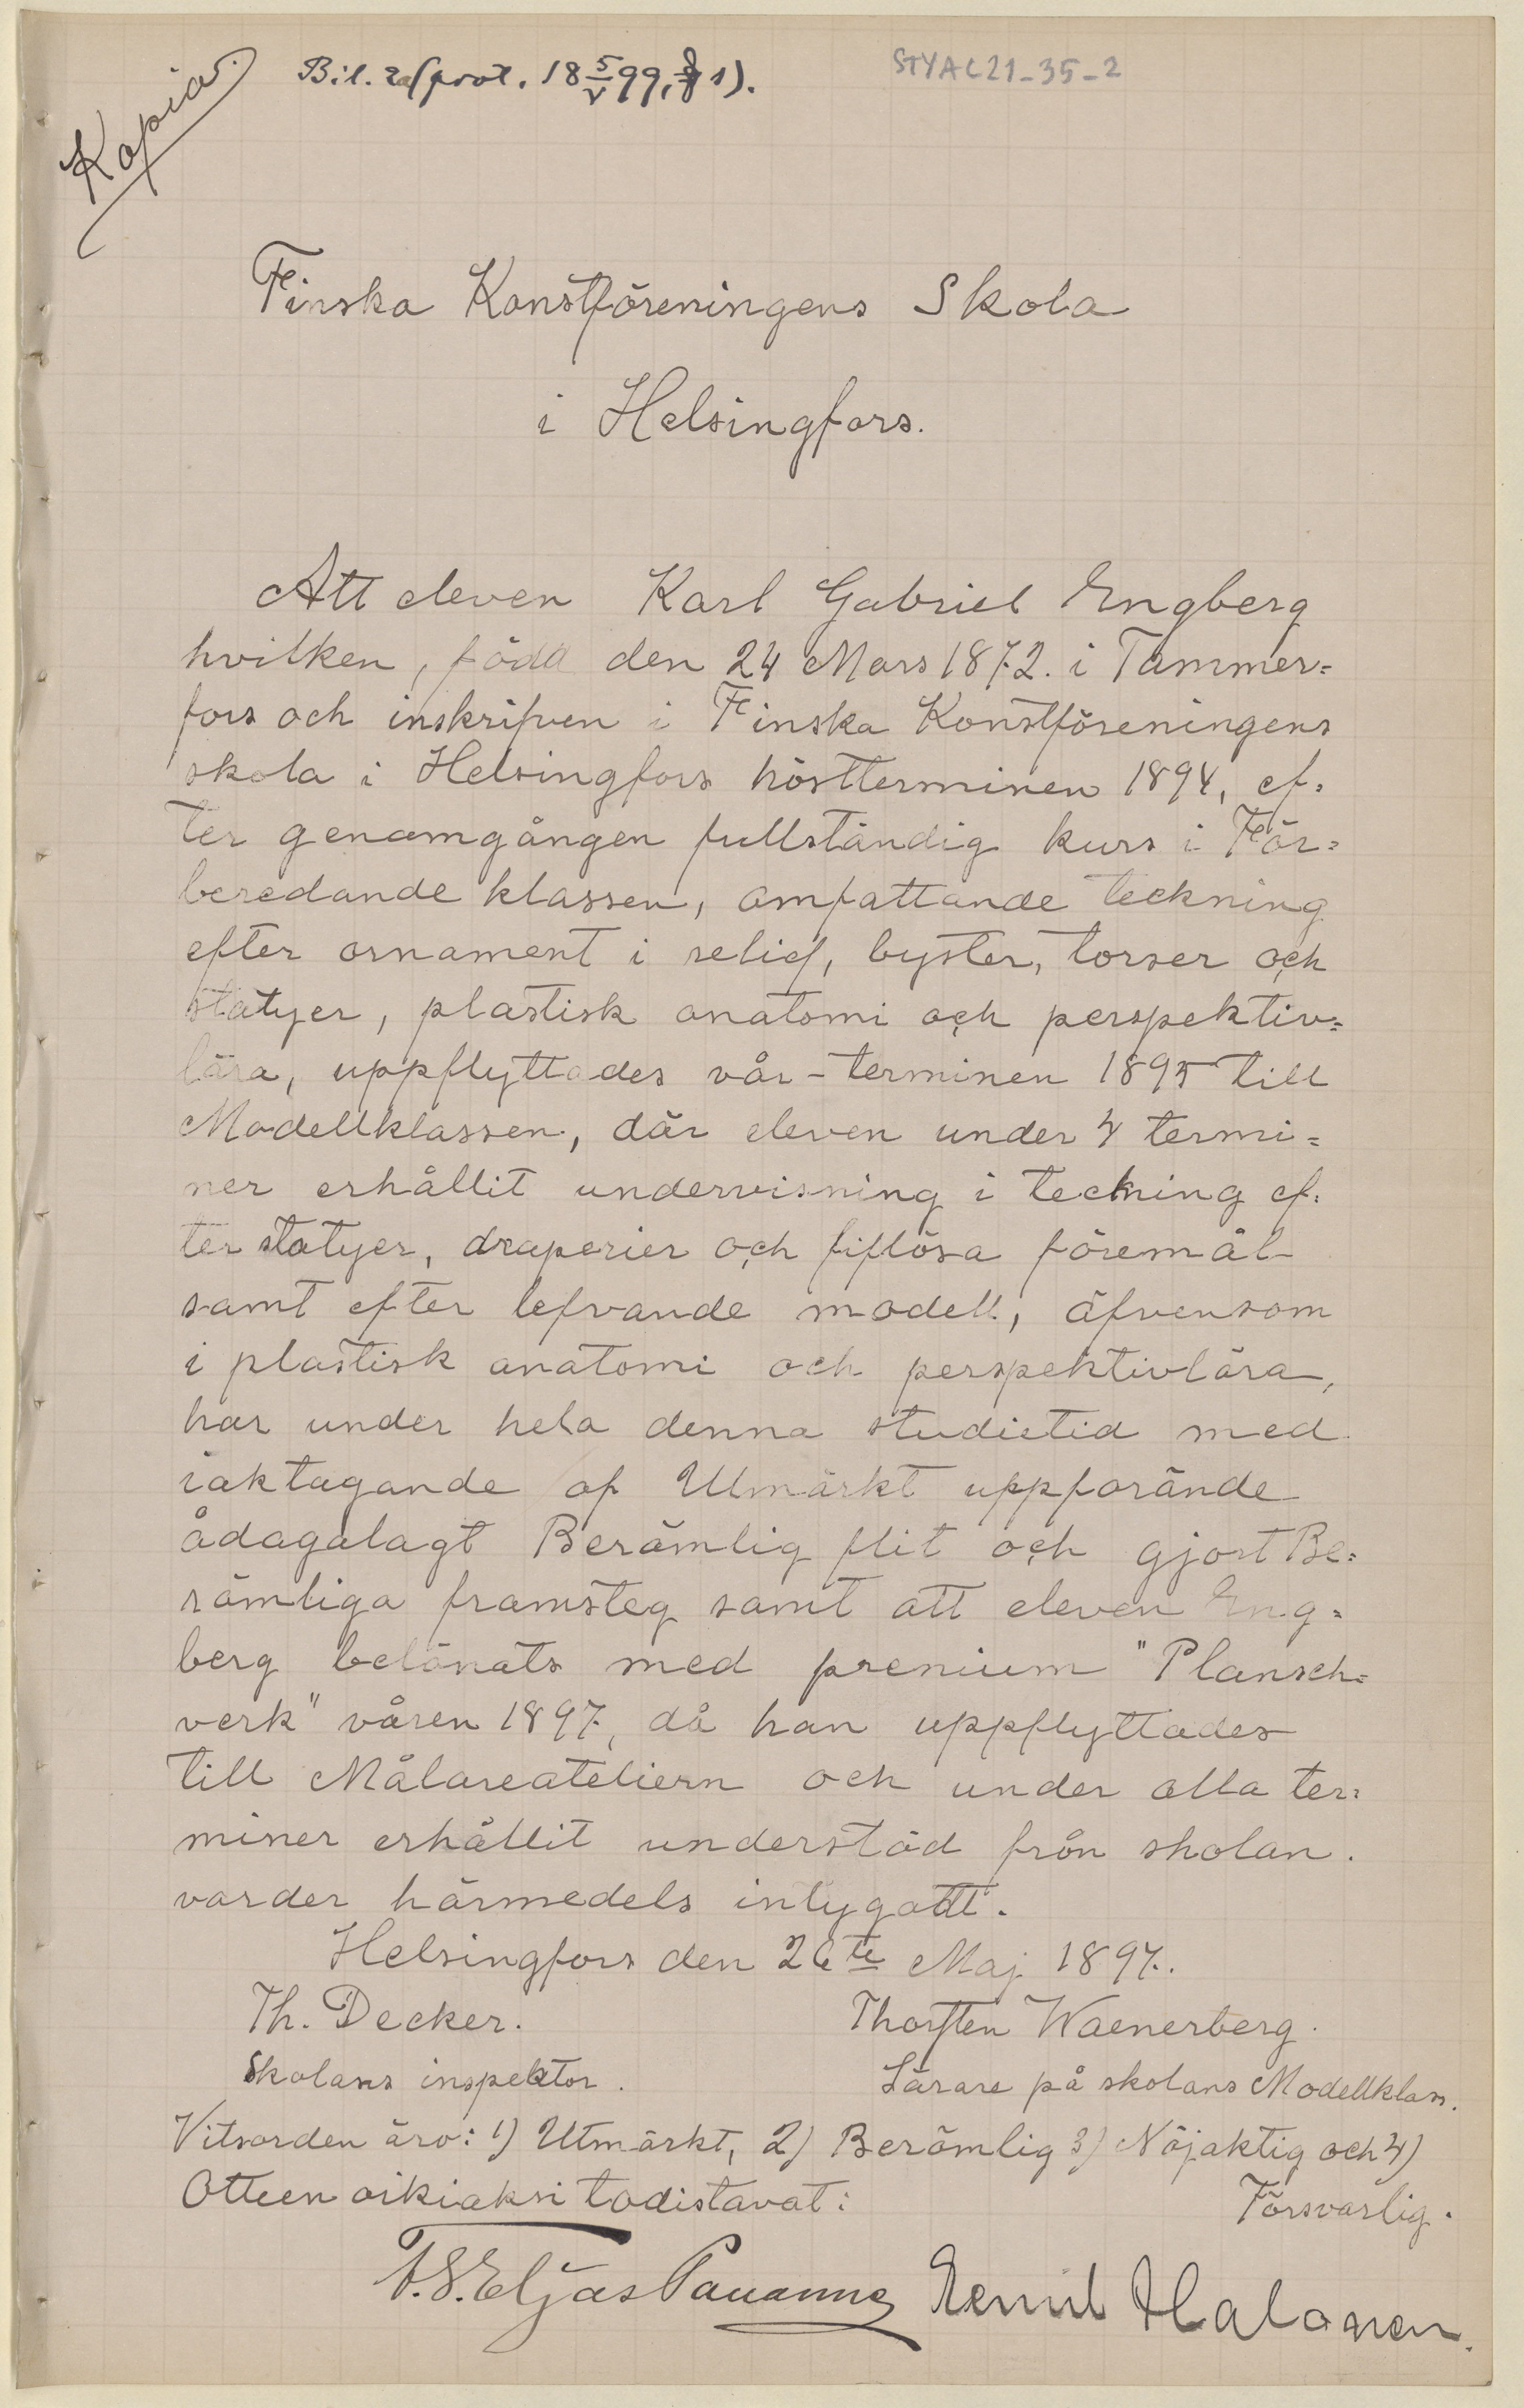 Kopia.
Bil. 2 (prot. 18 5/V 99, § 1).
STYAC21-35-2
Finska Konstföreningens Skola
i Helsingfors.
Att eleven Karl Gabriel Engberg
hvilken, född den 24 Mars 1872. i Tammer=
fors och inskrifven i Finska Konstföreningens
skola i Helsingfors höstterminen 1894, ef=
ter genomgången fullständig kurs i För=
beredande klassen, omfattande teckning
efter ornament i relief, byster, torser och
statyer, plastisk anatomi och perspektiv=
lära, uppflyttades vår-terminen 1895 till
Modellklassen, där eleven under 4 termi=
ner erhållit undervisning i teckning ef=
ter statyer, draperier och liflösa föremål
samt efter lefvande modell, äfvensom
i plastisk anatomi och perspektivlära,
har under hela denna studietid med
iakttagande af Utmärkt uppförande
ådagalagt Berömlig flit och gjort Be=
römliga framsteg samt att eleven Eng=
berg belönats med premium "Plansch=
verk" våren 1897, då han uppflyttades
till Målareateliern och under alla ter=
miner erhållit understöd från skolan.
varder härmedels intygadt.
Helsingfors den 26te Maj 1897.
Th. Decker.
Thorsten Waenerberg.
Skolans inspektor.
Lärare på skolans Modellklass.
Vitsorden äro: 1) Utmärkt, 2) Berömlig 3) Nöjaktig och 4)
Försvarlig.
Otteen oikiaksi todistavat:
Emil Halonen.